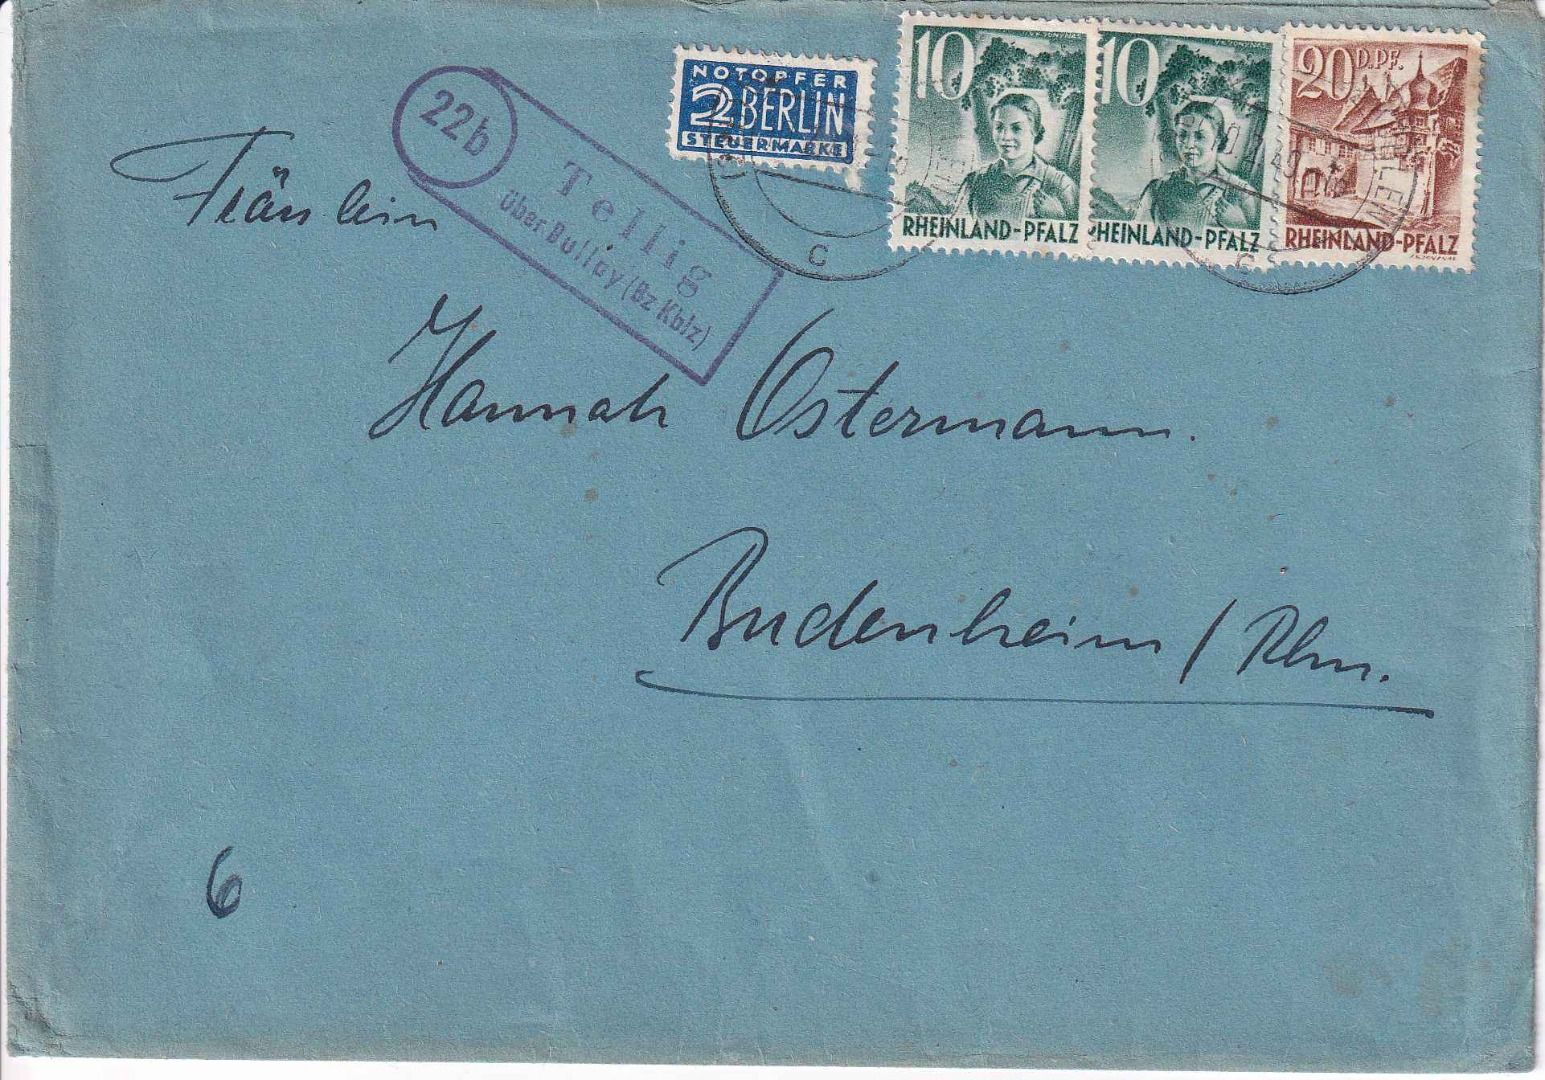 NOTOPFER
2 BERLIN
STEUERMARKE
10
RHEINLAND-PFALZ
10
RHEINLAND-PFALZ
20 D.PF.
RHEINLAND-PFALZ
c
c
22b
Tellig
über Bullay (Bz Kblz)
Fräulein
Hannah Ostermann.
Budenheim / Rhn.
6